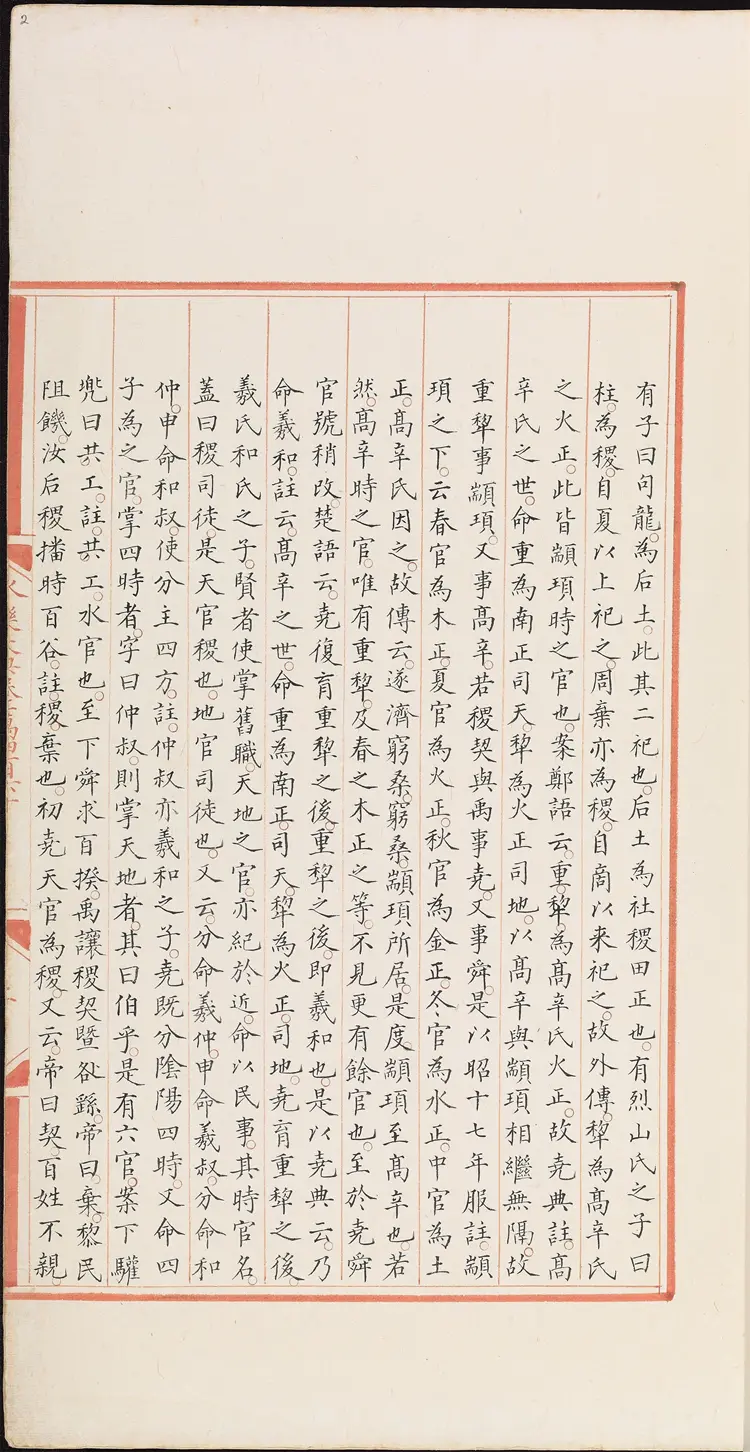 2
有子曰句龍。為后土。此其二祀也。后土為社稷田正也。有烈山氏之子曰
柱。為稷。自夏以上祀之。周棄亦為稷。自商以來祀之。故外傳。犂為髙辛氏
之火正。此皆顓頊時之官也。案鄭語云。重犂。為髙辛氏火正。故堯典註。髙
辛氏之世。命重為南正司天。犂為火正司地。以髙辛與顓頊相繼無隔。故
重犂事顓頊。又事髙辛。若稷契與禹事堯。又事舜。是以昭十七年服註。顓
頊之下。云春官為木正。夏官為火正。秋官為金正。冬官為水正。中官為土
正。髙辛氏因之。故傳云。遂濟窮桑。窮桑。顓頊所居。是度。顓頊至髙辛也。若
然。髙辛時之官。唯有重犂。及春之木正之等。不見更有餘官也。至於堯舜
官號稍改。楚語云。堯復育重犂之後。重犂之後。即羲和也。是以堯典云。乃
命羲和。註云。髙辛之世。命重為南正。司天。犂為火正。司地。堯育重犂之後。
羲氏和氏之子。賢者使掌舊職。天地之官。亦紀於近。命以民事。其時官名。
蓋曰稷司徒。是天官稷也。地官司徒也。又云。分命羲仲。申命羲叔。分命和
仲。申命和叔。使分主四方。註。仲叔亦羲和之子。堯既分陰陽四時。又命四
子為之官。掌四時者。字曰仲叔。則掌天地者。其曰伯乎。是有六官。案下驩
兜曰共工。註。共工。水官也。至下舜求百揆。禹讓稷契暨咎繇。帝曰。棄。黎民
阻饑。汝后稷播時百谷。註。稷。棄也。初堯天官為稷。又云。帝曰契。百姓不親。